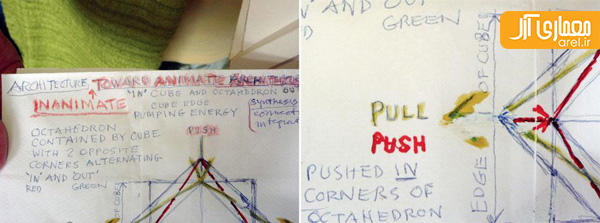 ARCHITECTURE TOWARD ANIMATE ARCHITECTURE
INANIMATE
"IN" CUBE AND OCTAHEDRON
CUBE EDGE
PUMPING ENERGY
synthesis
connect
integrat
PUSH
OCTAHEDRON
CONTAINED BY CUBE
WITH 2 OPPOSITE
CORNERS ALTERNATING
'IN' AND OUT'
RED GREEN
OF CUBE
'IN' AND OUT'
GREEN
معماری آرل
arel.ir
OF CUBE
PULL
PUSH
PUSHED IN
CORNERS OF
OCTAHEDRON
EDGE